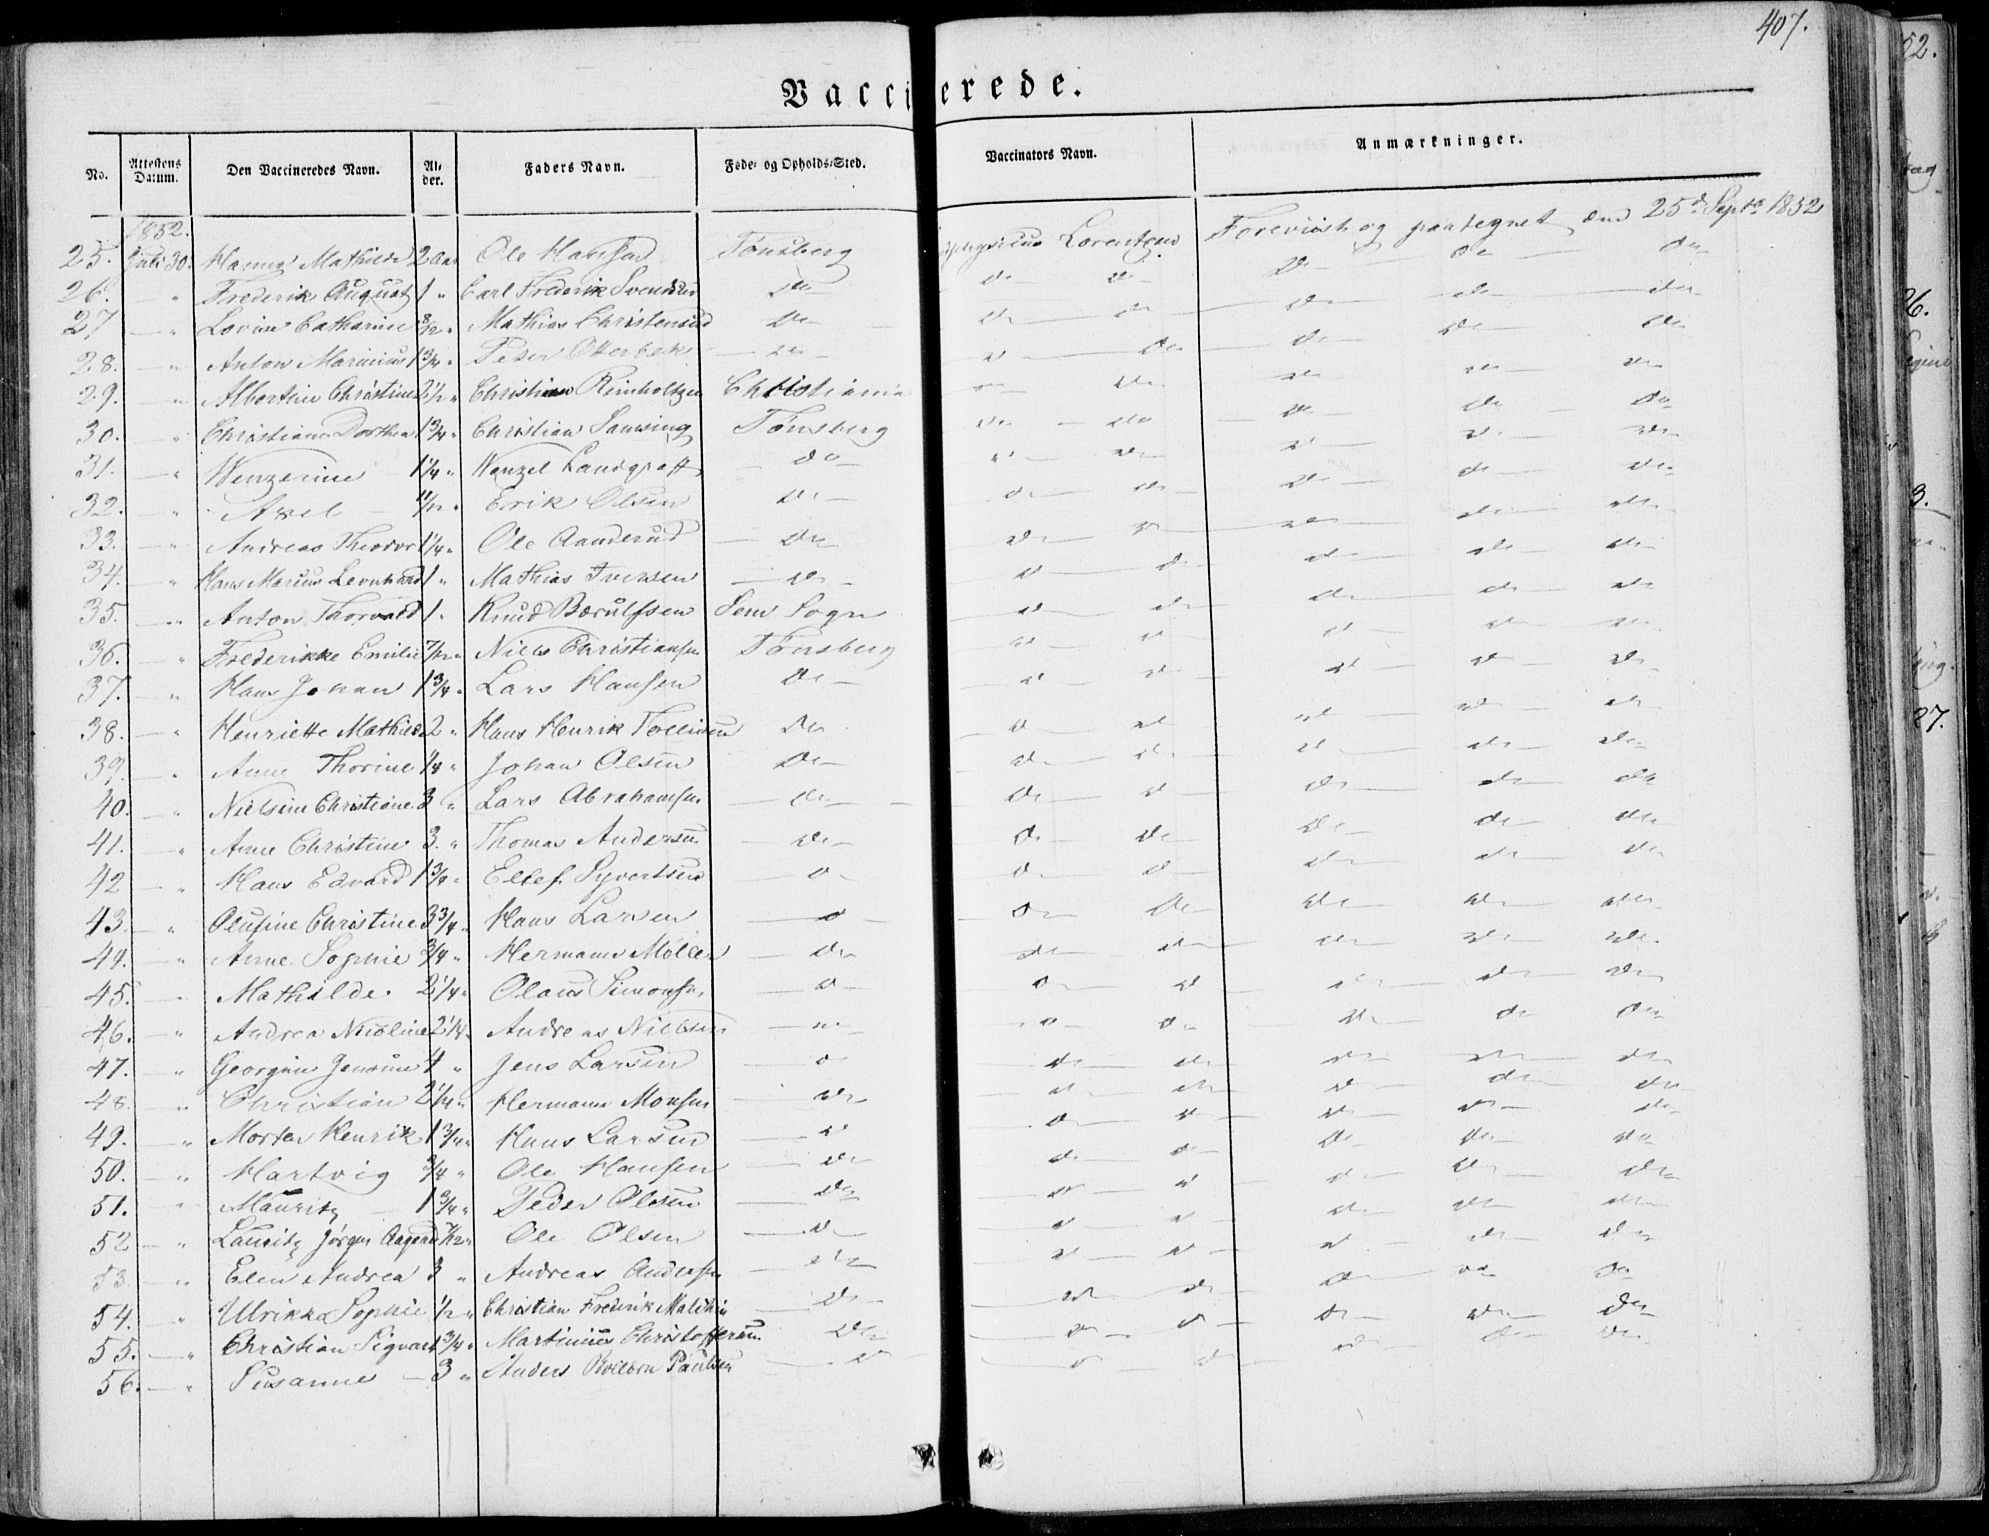 407.
Vaccinerede.
No. Attestens Datum. Den Vaccineredes Navn. Al-der. Faders Navn. Føde- og Opholds-Sted. Vaccinators Navn. Anmærkninger.
1852.
25. Juli 30. Hanna Mathilde 2 Aar Ole Hansen Tønsberg Lorentzen Foreviist og paategnet den 25d Septb 1852
26. " Frederik August 1 " Carl Frederik Svendsen do do do do do do
27 — " Lovise Catharine 8/12 " Mathias Christensen do do do do do do
28. — " Anton Marinius 1 3/4 " Peder Otterbek — do do do do do do
29. — " Albertine Christine 2 1/2 " Christian Reinholtzen Christiania do do do do do
30. — " Christiane Dorthea 1 3/4 " Christian Sansing Tønsberg do do do do do
31. — " Wenzeline — 1 1/4 " Wenzel Landgraff — do — do do do do do
32. — " Axel — 11/12 " Erik Olsen do — do do do do do
33. — " Andreas Theodor 1 1/4 " Ole Aanderud — do do do do do do
34. — " Hans Marius Leonhard 1 " Mathias Iversen — do — do do do do do
35. — " Anton Thorvald 1 " Knud Børulfsen Sem Sogn do do do do do
36. — " Frederikke Emilie 7/12 " Niels Christiansen Tønsberg do do do do do
37. — " Hans Johan 1 3/4 " Lars Hansen do — do do do do do
38. — " Henriette Mathilde 2 " Hans Henrik Tollevsen do do do do do do
39. — " Anne Thorine 1/4 " Johan Olsen do — do do do do do
40. — " Nielsine Christiane 3 " Lars Abrahamsen — do — do do do do do
41. — " Anne Christine 3. " Thomas Andersen — do — do do do do do
42 — " Hans Edvard 1 3/4 " Ellef Syvertsen — do do do do do do
43. — " Olufine Christine 3 3/4 " Hans Larsen — do — do do do do do
44. — " Anne Sophie 3/4 " Hermann Møller — do do do do do do
45. — " Mathilde 2 1/4 " Olaus Simonsen — do — do do do do do
46. — " Andrea Nicoline 2 1/4 " Andreas Nielsen — do do do do do do
47. — " Georgine Jensine 4 " Jens Larsen — do do do do do do
48. — " Christian 2 1/4 " Hermann Monsen — do do do do do do
49. — " Morten Henrik 1 3/4 " Hans Larsen — do do do do do do
50. — " Hartvig 3/4 " Ole Hansen — do do do do do do
51. — " Mauritz — 1 3/4 " Peder Olsen — do do do do do do
52 — " Lauritz Jørgen 7/12 " Ole Olsen — do do do do do do
53 — " Elen Andrea 3 " Andreas Andersen — do do do do do do
54. — " Ulrikka Sophie 1/2 " Christian Frederik — do do do do do do
55. — " Christian Sigvard 3/4 " Martinius Christoffersen — do do do do do do
56. — " Susanne — 3 " Anders Paulsen — do do do do do do